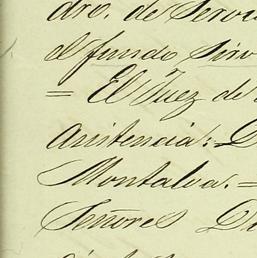 dro. de Servi
el fundo Sirv
= El Juez de
Asistencia: D
Montalva. =
Señores D